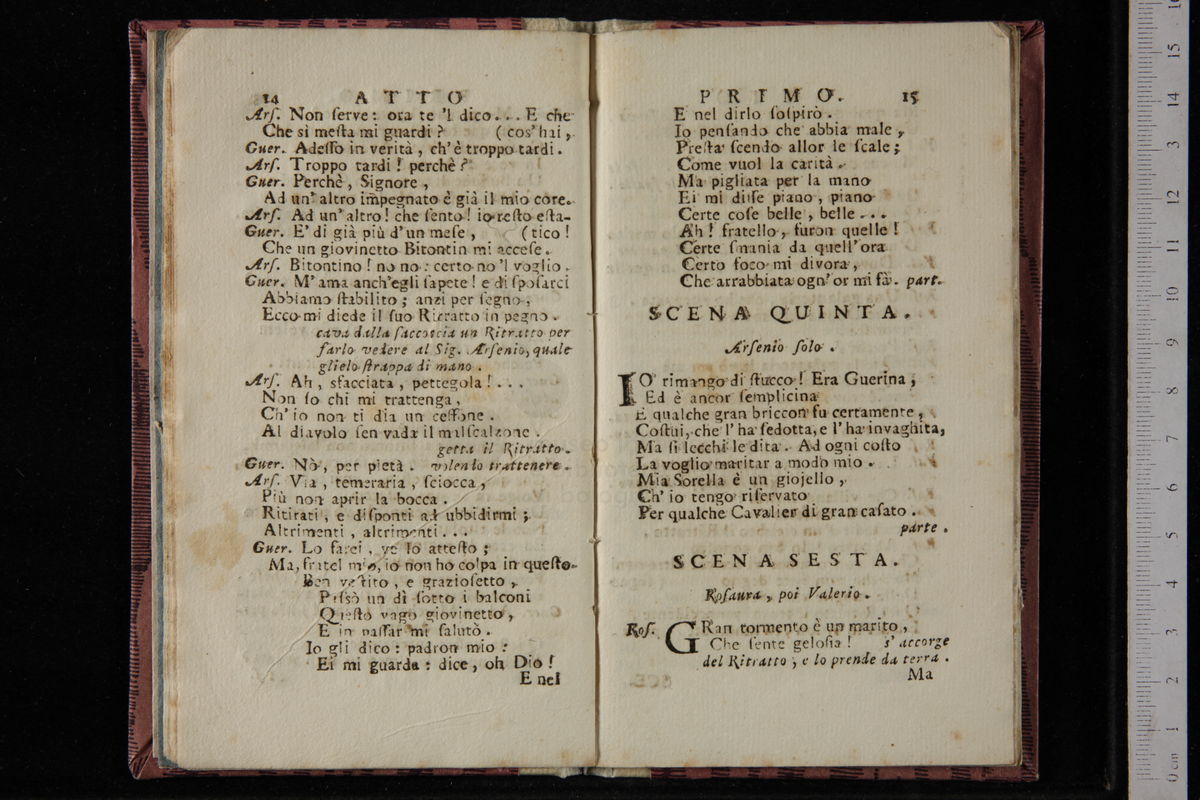 14 ATTO
Arſ. Non ſerve: ora te 'l dico... E che
Che sì meſta mi guardi? (cos' hai,
Guer. Adeſſo in verità, ch'è troppo tardi.
Arſ. Troppo tardi! perchè?
Guer. Perchè, Signore,
Ad un' altro impegnato è già il mio core.
Arſ. Ad un' altro! che ſento! io reſto eſta-
Guer. E' di già più d'un meſe, (tico!
Che un giovinetto Bitontin mi acceſe.
Arſ. Bitontino! no no: certo no 'l voglio.
Guer. M' ama anch'egli ſapete! e di ſpoſarci
Abbiamo ſtabilito; anzi per ſegno,
Ecco mi diede il ſuo Ritratto in pegno.
cava dalla ſaccoccia un Ritratto per
farlo vedere al Sig. Arſenio, quale
glielo ſtrappa di mano.
Arſ. Ah, sfacciata, pettegola!...
Non ſo chi mi trattenga,
Ch' io non ti dia un ceffone.
Al diavolo ſen vada il malſcalzone.
getta il Ritratto.
Guer. Nò, per pietà. volendo trattenere.
Arſ. Via, temeraria, ſciocca,
Più non aprir la bocca.
Ritirati, e diſponti ad ubbidirmi;
Altrimenti, altrimenti...
Guer. Lo farei, ve lo atteſto;
Ma, fratel mio, io non ho colpa in queſto.
Ben veſtito, e grazioſetto,
Paſsò un dì ſotto i balconi
Queſto vago giovinetto,
E in paſſar mi ſalutò.
Io gli dico: padron mio:
Ei mi guarda: dice, oh Dio!
E nel
PRIMO. 15
E nel dirlo ſoſpirò.
Io penſando che abbia male,
Preſta ſcendo allor le ſcale;
Come vuol la carità.
Ma pigliata per la mano
Ei mi diſſe piano, piano
Certe coſe belle, belle...
Ah! fratello, furon quelle!
Certe ſmania da quell' ora
Certo foco mi divora,
Che arrabbiata ogn' or mi fà. part.
SCENA QUINTA.
Arſenio ſolo.
IO rimango di ſtucco! Era Guerina,
Ed è ancor ſemplicina
E qualche gran briccon fu certamente,
Coſtui, che l' ha ſedotta, e l' ha invaghita,
Ma ſi lecchi le dita. Ad ogni coſto
La voglio maritar a modo mio.
Mia Sorella è un giojello,
Ch' io tengo riſervato
Per qualche Cavalier di gran caſato.
parte.
SCENA SESTA.
Roſaura, poi Valerio.
Roſ. GRan tormento è un marito,
Che ſente geloſia! s' accorge
del Ritratto, e lo prende da terra.
Ma